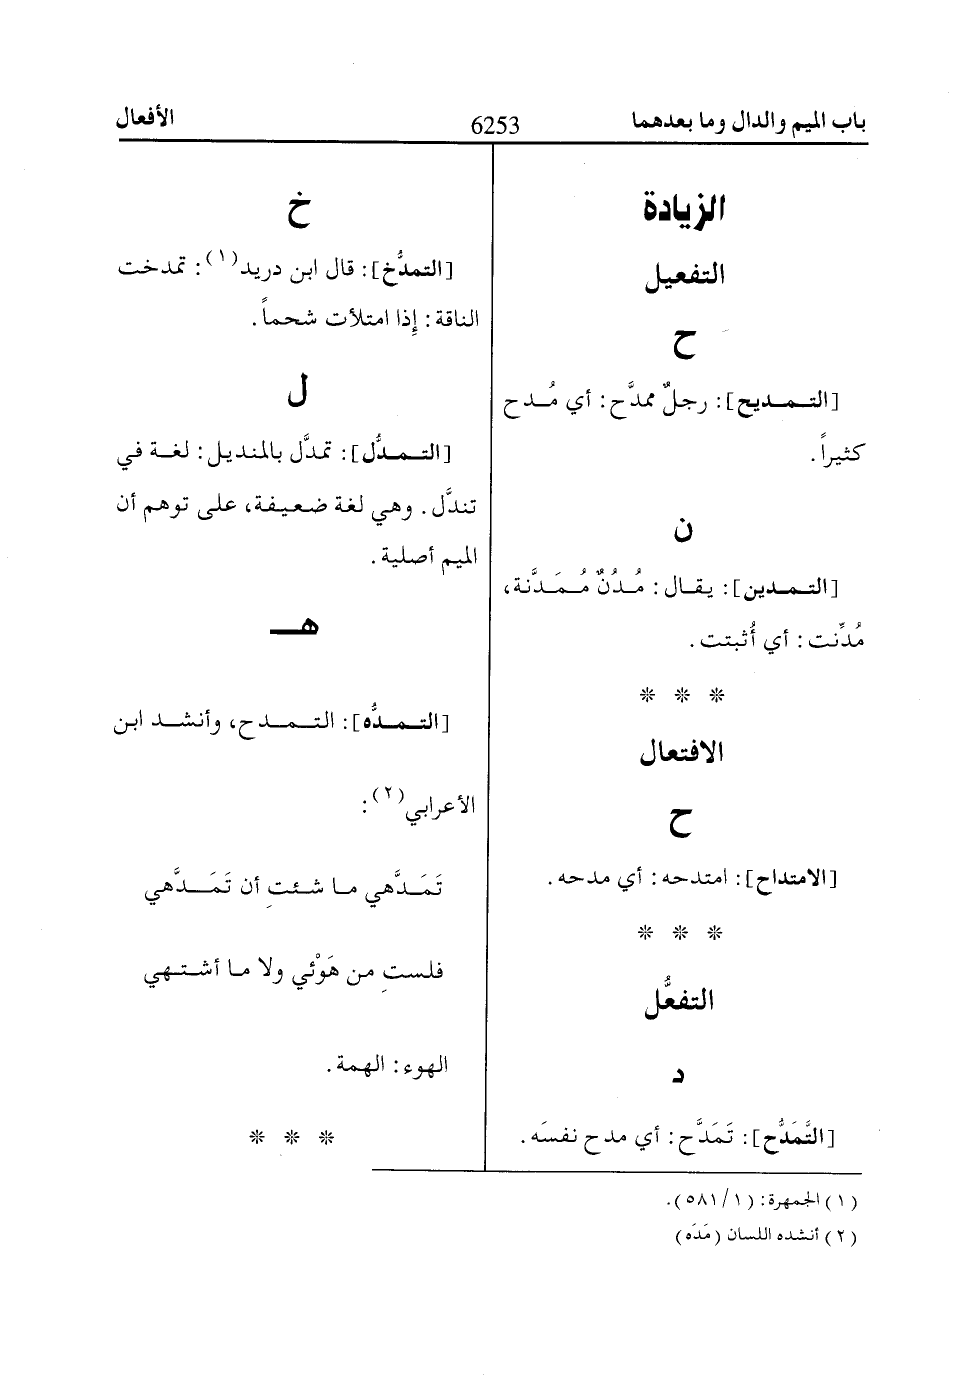 باب الميم والدال وما بعدهما
6253
الأفعال
الزيادة
التفعيل
ح
[التـمـديح]: رجلٌ ممدَّح: أي مُدح
كثيراً.
ن
[التـمدين]: يقال: مُدُنٌ مُمَدَّنة،
مُدِّنت: أي أُثبتت.
* * *
الافتعال
ح
[الامتداح]: امتدحه: أي مدحه.
* * *
التفعُّل
د
[التَّمَدُّح]: تَمَدَّح: أي مدح نفسَه.
خ
[التمدُّخ]: قال ابن دريد(١): تمدخت
الناقة: إِذا امتلأت شحماً.
ل
[التـمدُّل]: تمدَّل بالمنديل: لغة في
تندَّل. وهي لغة ضعيفة، على توهم أن
الميم أصلية.
هـ
[التمدُّه]: التمدح، وأنشد ابن
الأعرابي(٢):
تَمَدَّهي ما شئتِ أن تَمَدَّهي
فلستِ من هَوْئي ولا ما أشتهي
الهوء: الهمة.
* * *
(١) الجمهرة: (١/٥٨١).
(٢) أنشده اللسان (مَدَه)